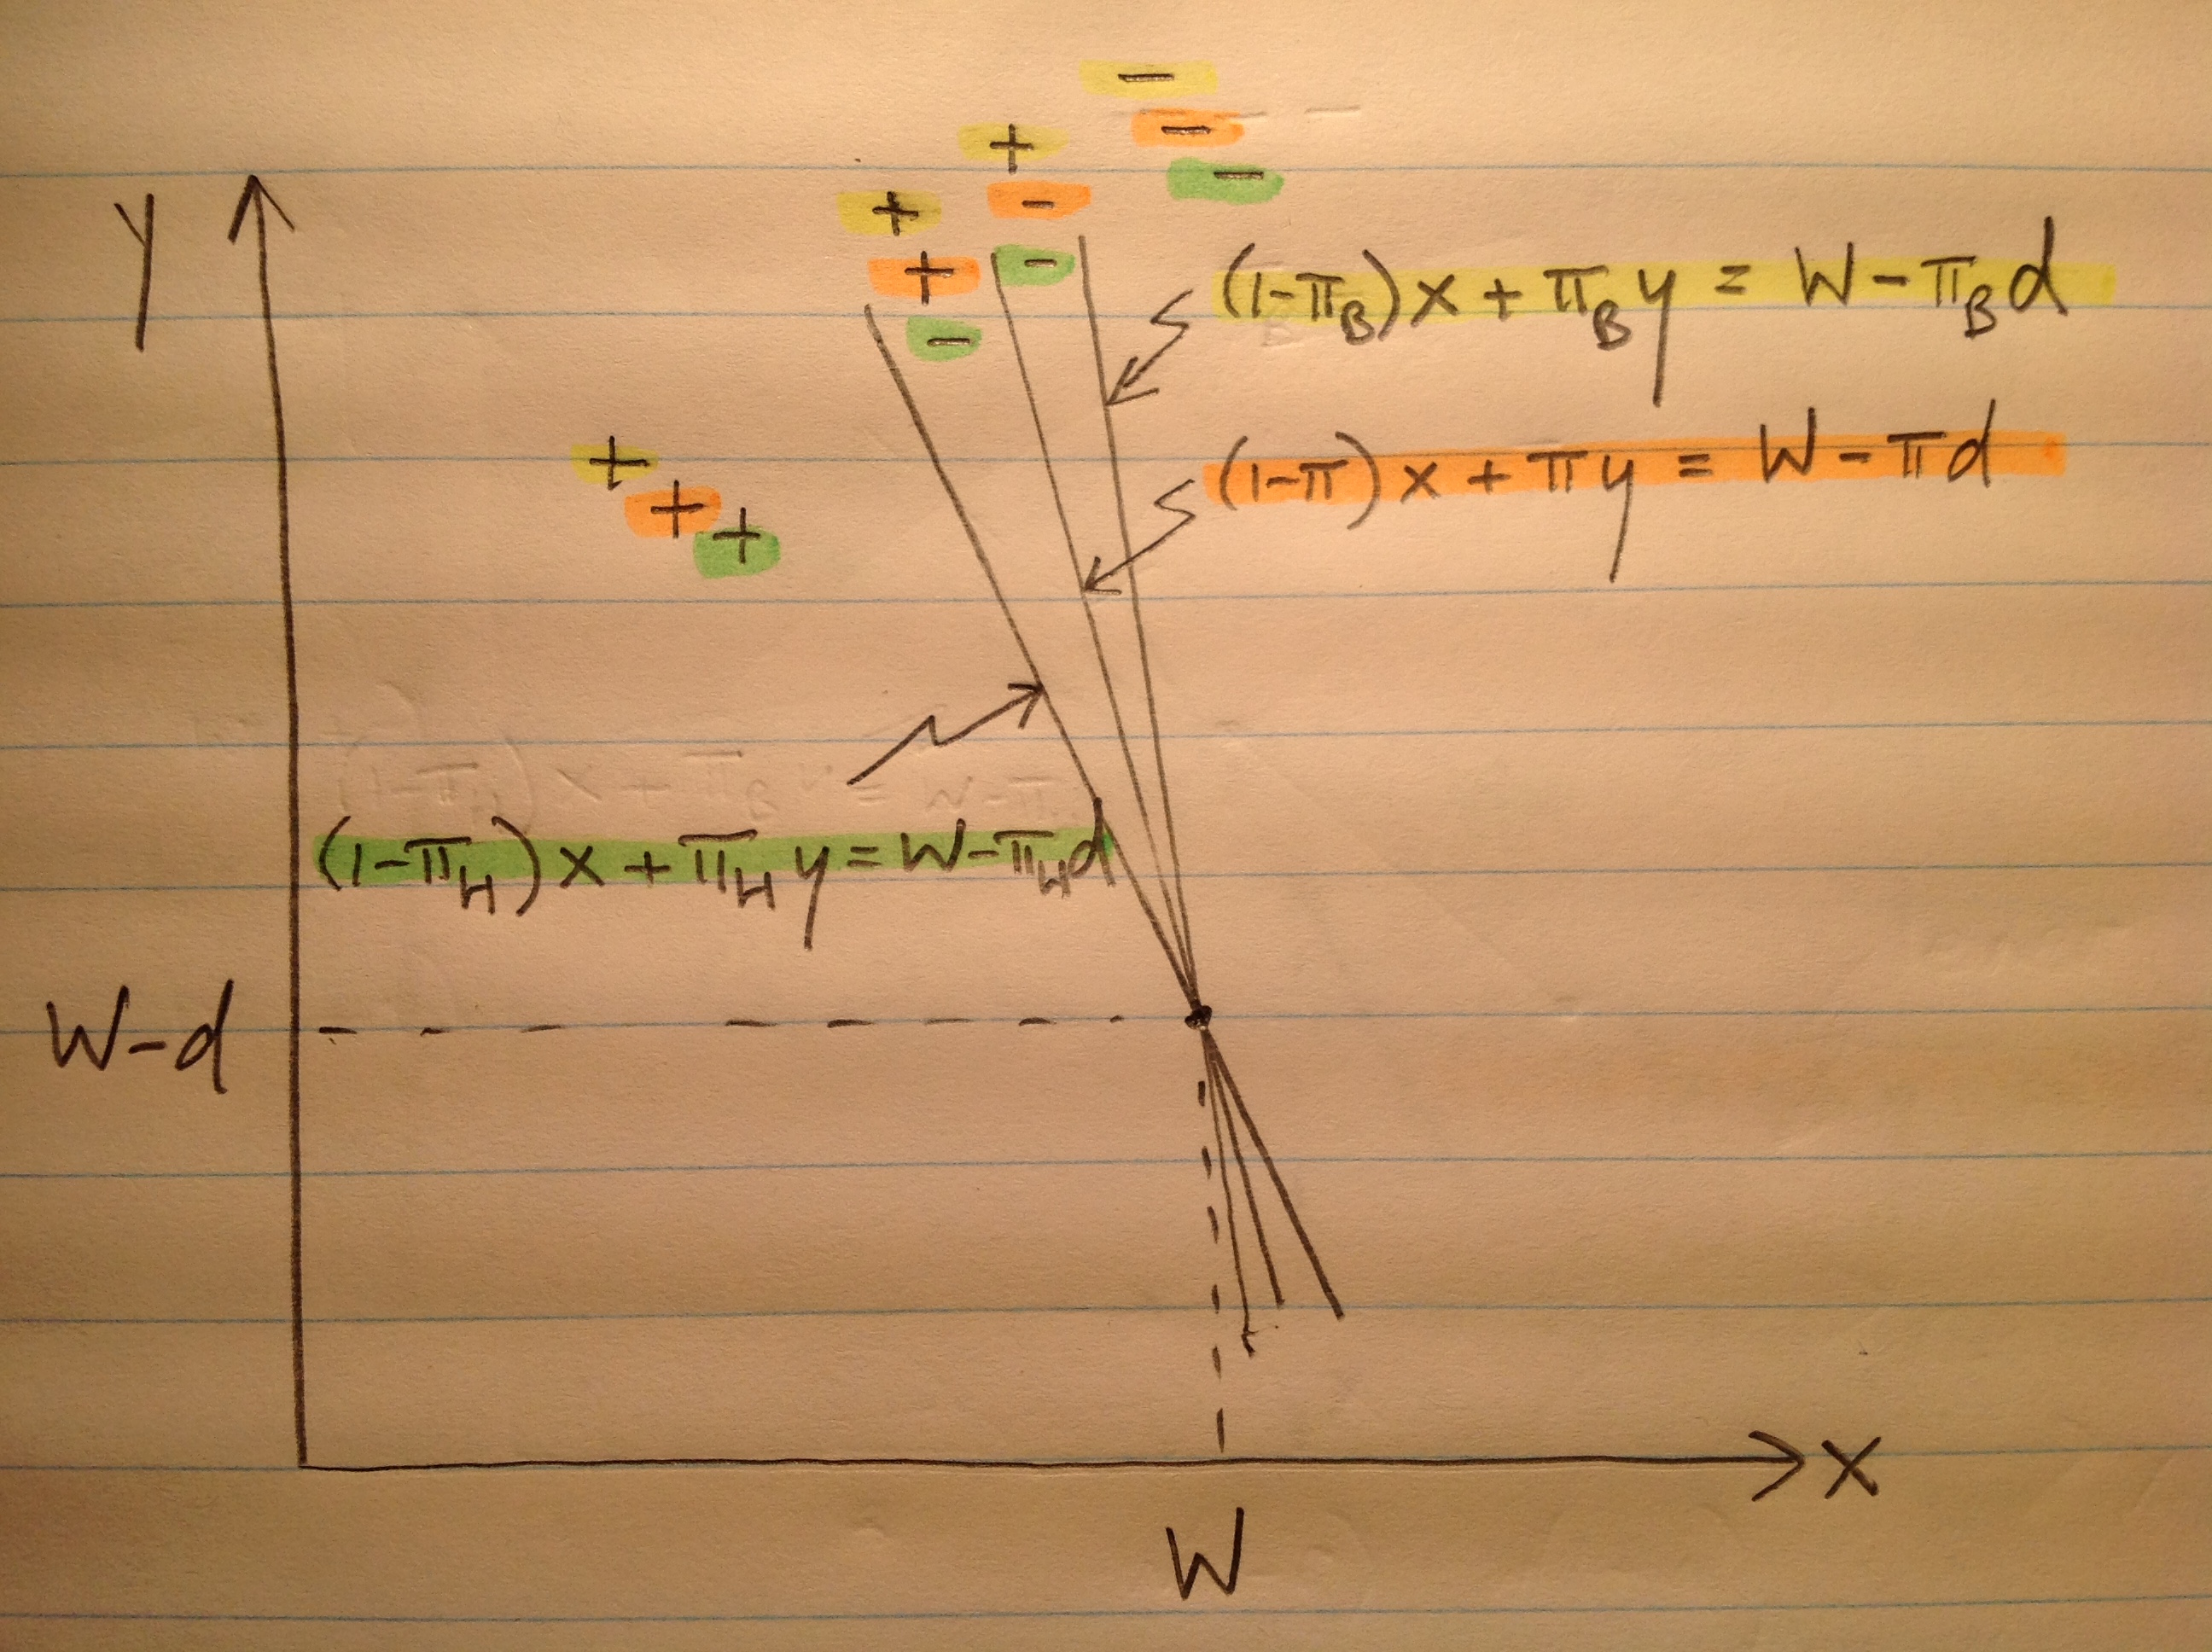 −
+ −
+ − −
+ −
−
y
(1-π_B)x + π_B y = W - π_B d
+
+
+
(1-π)x + πy = W - πd
(1-π_H)x + π_H y = W - π_H d
W-d
x
W